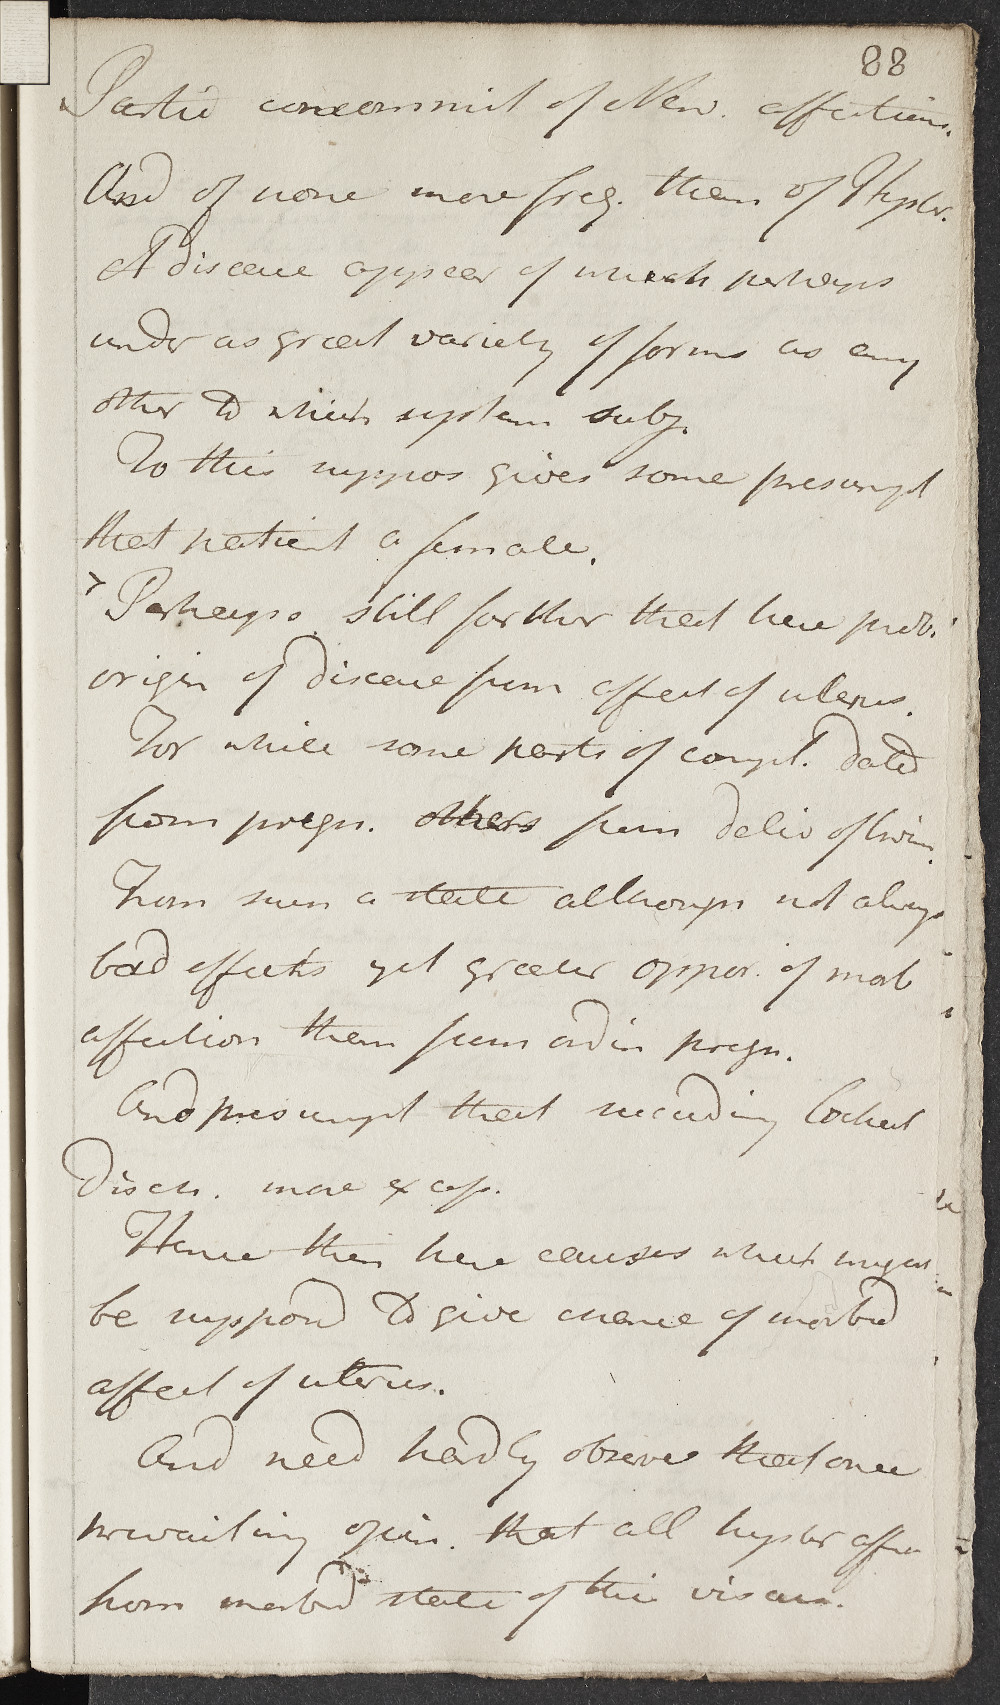 88
Partic concommit of Nerv. affections.
And of none more freq. than of Hyster.
A disease appear of which perhaps
under as great variety of forms as any
other to which system subj.
To this suppos gives some presumpt
that patient a female.
Perhaps still farther that here prob.
origin of disease from affect of uterus.
For while some parts of compl. dated
from pregn. others from deliv of twin.
From such a state although not always
bad effects yet greater oppor. of morb
affection than from ordin pregn.
And presumpt that succeeding Lochial
Disch. more excess.
Hence then here causes which might
be supposed to give chance of morbid
affect of uterus.
And need hardly observe that once
prevailing opin. that all hyster affec
from morbid state of this viscus.